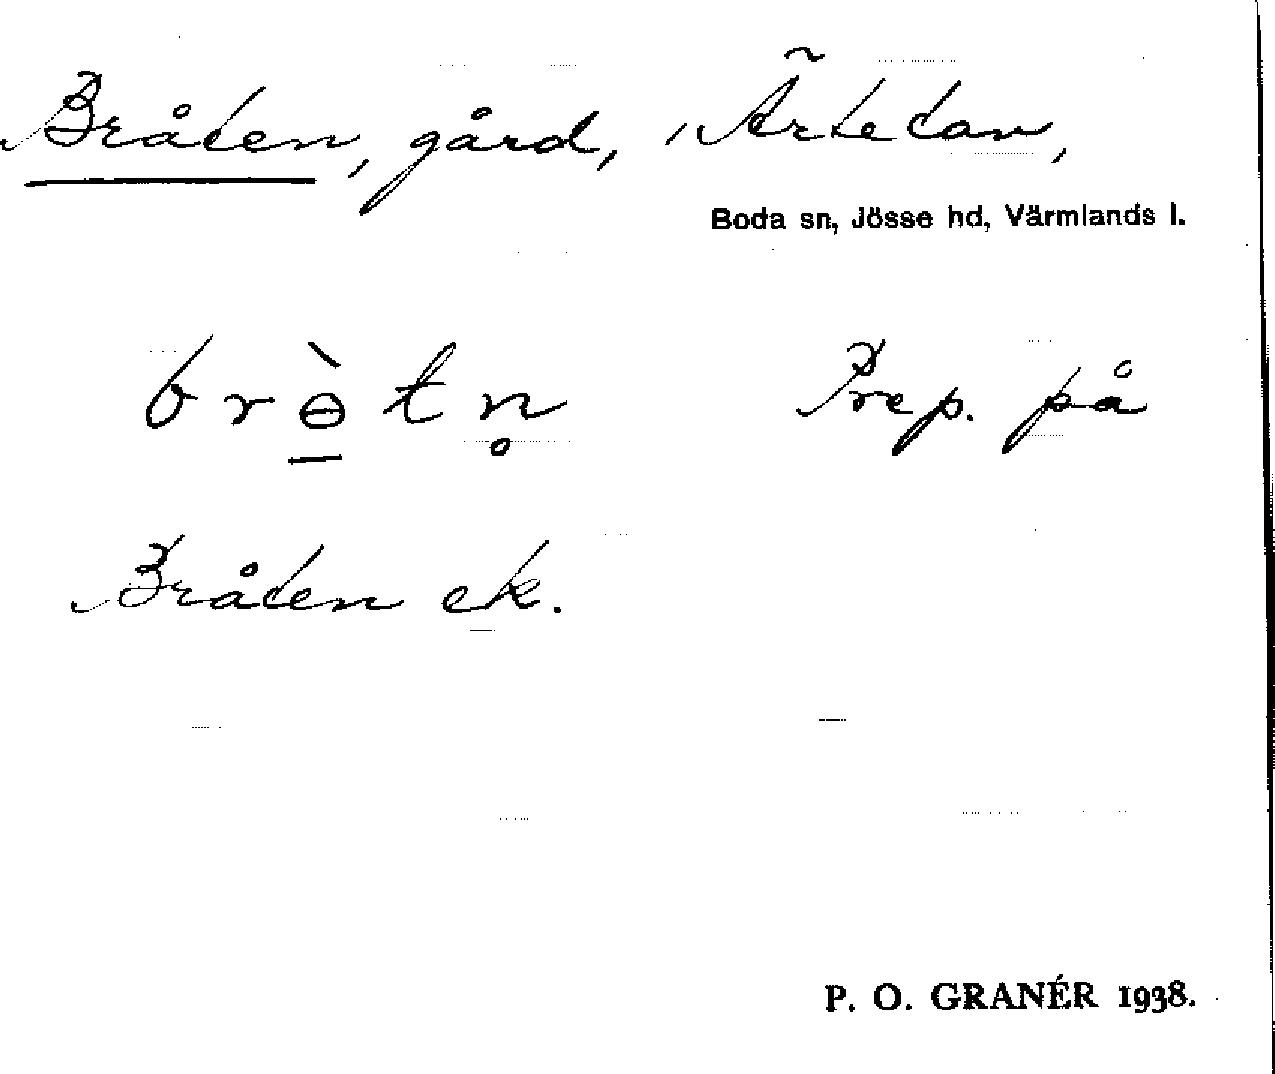 Bråten, gård, Ärtetan,
Boda sn, Jösse hd, Värmlands l.
brɵ̱̀tn̥ Prep. på
Bråten ek.
P. O. GRANÉR 1938.